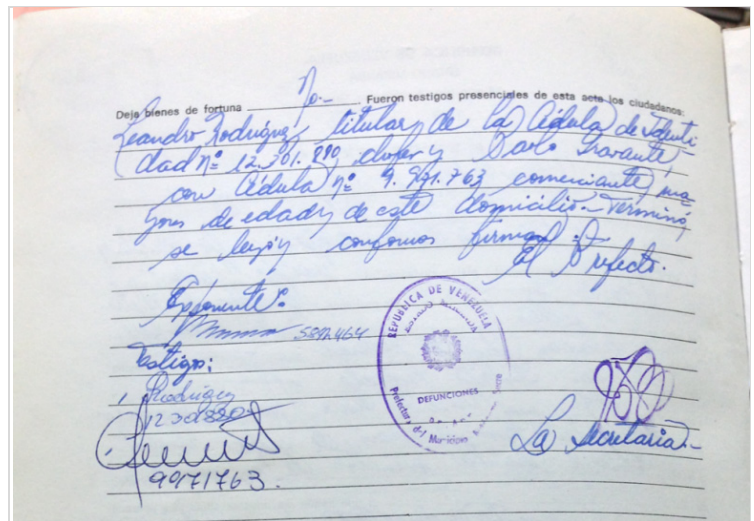 Deja bienes de fortuna No.- Fueron testigos presenciales de esta acta los ciudadanos:
Leandro Rodríguez, titular de la Cédula de Identi
dad nº 12.301.880, chofer y Savante,
con Cédula nº 9.971.763 comerciante, ma-
yores de edad y de este domicilio.- Terminó,
se leyó y conformes firman.-
El Prefecto.
Exponente:
5592464
Testigos:
Rodriguez
12301880
9971763.
REPUBLICA DE VENEZUELA
ESTADO MIRANDA
DEFUNCIONES
Prefectura del Municipio Sucre
La Secretaria.-